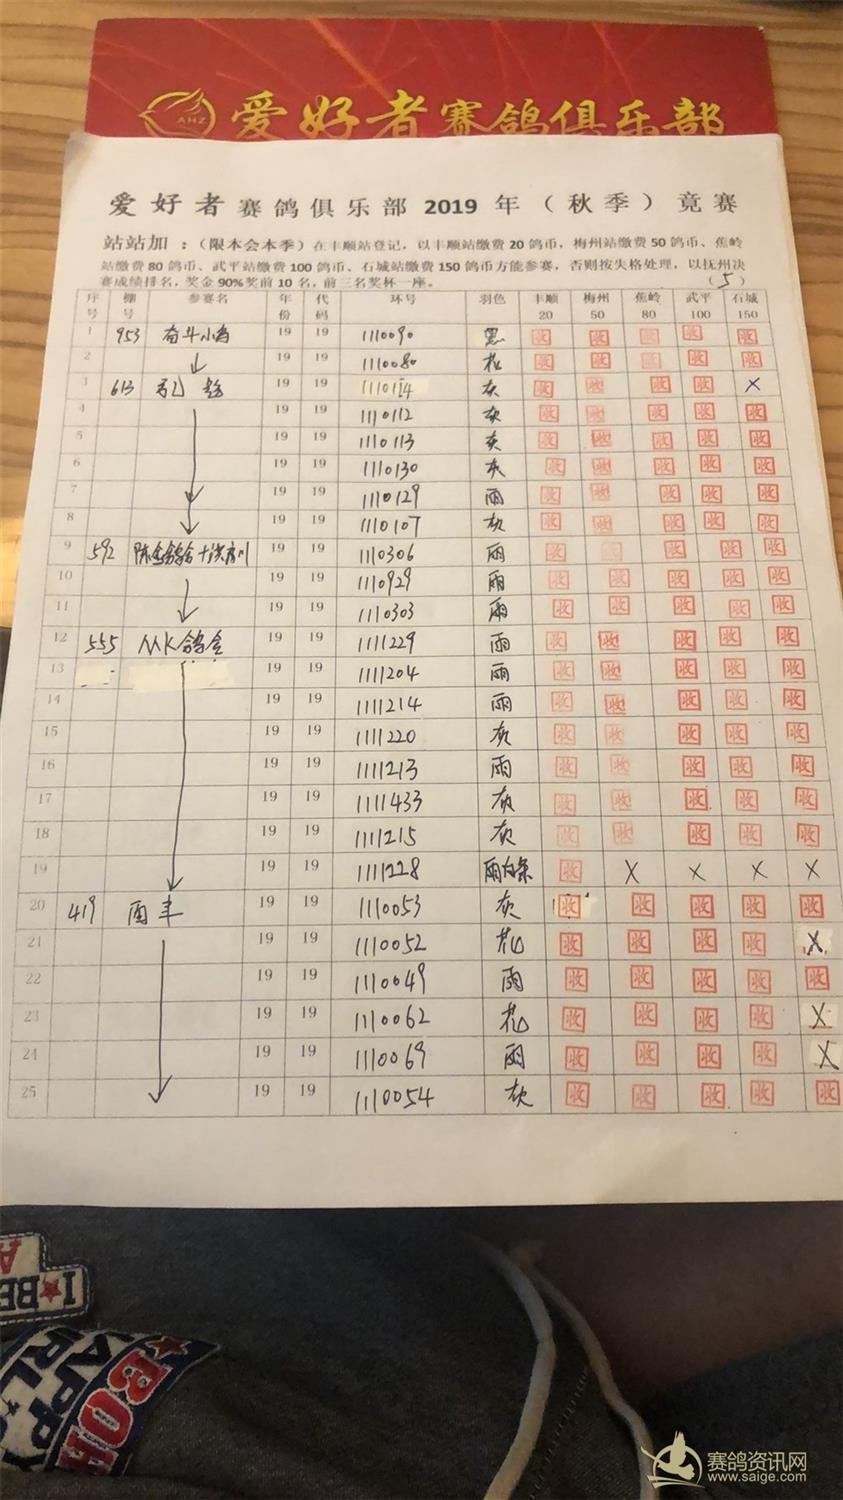 AHZ 爱好者赛鸽俱乐部
爱好者赛鸽俱乐部2019年（秋季）竞赛
站站加：（限本会本季）在丰顺站登记，以丰顺站缴费20鸽币，梅州站缴费50鸽币、蕉岭
站缴费80鸽币、武平站缴费100鸽币、石城站缴费150鸽币方能参赛，否则按失格处理，以抚州决
赛成绩排名，奖金90%奖前10名，前三名奖杯一座。 （5）
序号 棚号 参赛名 年份 代码 环号 羽色 丰顺20 梅州50 蕉岭80 武平100 石城150
1 953 奋斗小 19 19 1110090 黑 收 收 收 收 收
2 19 19 1110080 花 收 收 收 收 收
3 613 19 19 1110114 灰 收 收 收 收 X
4 19 19 1110112 灰 收 收 收 收 收
5 19 19 1110113 灰 收 收 收 收 收
6 19 19 1110130 灰 收 收 收 收 收
7 19 19 1110129 雨 收 收 收 收 收
8 19 19 1110107 灰 收 收 收 收 收
9 592 19 19 1110306 雨 收 收 收 收 收
10 19 19 1110929 雨 收 收 收 收 收
11 19 19 1110303 雨 收 收 收 收 收
12 555 MK鸽舍 19 19 1111229 雨 收 收 收 收 收
13 19 19 1111204 雨 收 收 收 收 收
14 19 19 1111214 雨 收 收 收 收 收
15 19 19 1111220 灰 收 收 收 收 收
16 19 19 1111213 雨 收 收 收 收 收
17 19 19 1111433 灰 收 收 收 收 收
18 19 19 1111215 灰 收 收 收 收 收
19 19 19 1111228 雨白条 收 X X X X
20 419 酉丰 19 19 1110053 灰 收 收 收 收 收
21 19 19 1110052 花 收 收 收 收 X
22 19 19 1110049 雨 收 收 收 收 收
23 19 19 1110062 花 收 收 收 收 X
24 19 19 1110069 雨 收 收 收 收 X
25 19 19 1110054 灰 收 收 收 收 收
赛鸽资讯网
www.saige.com